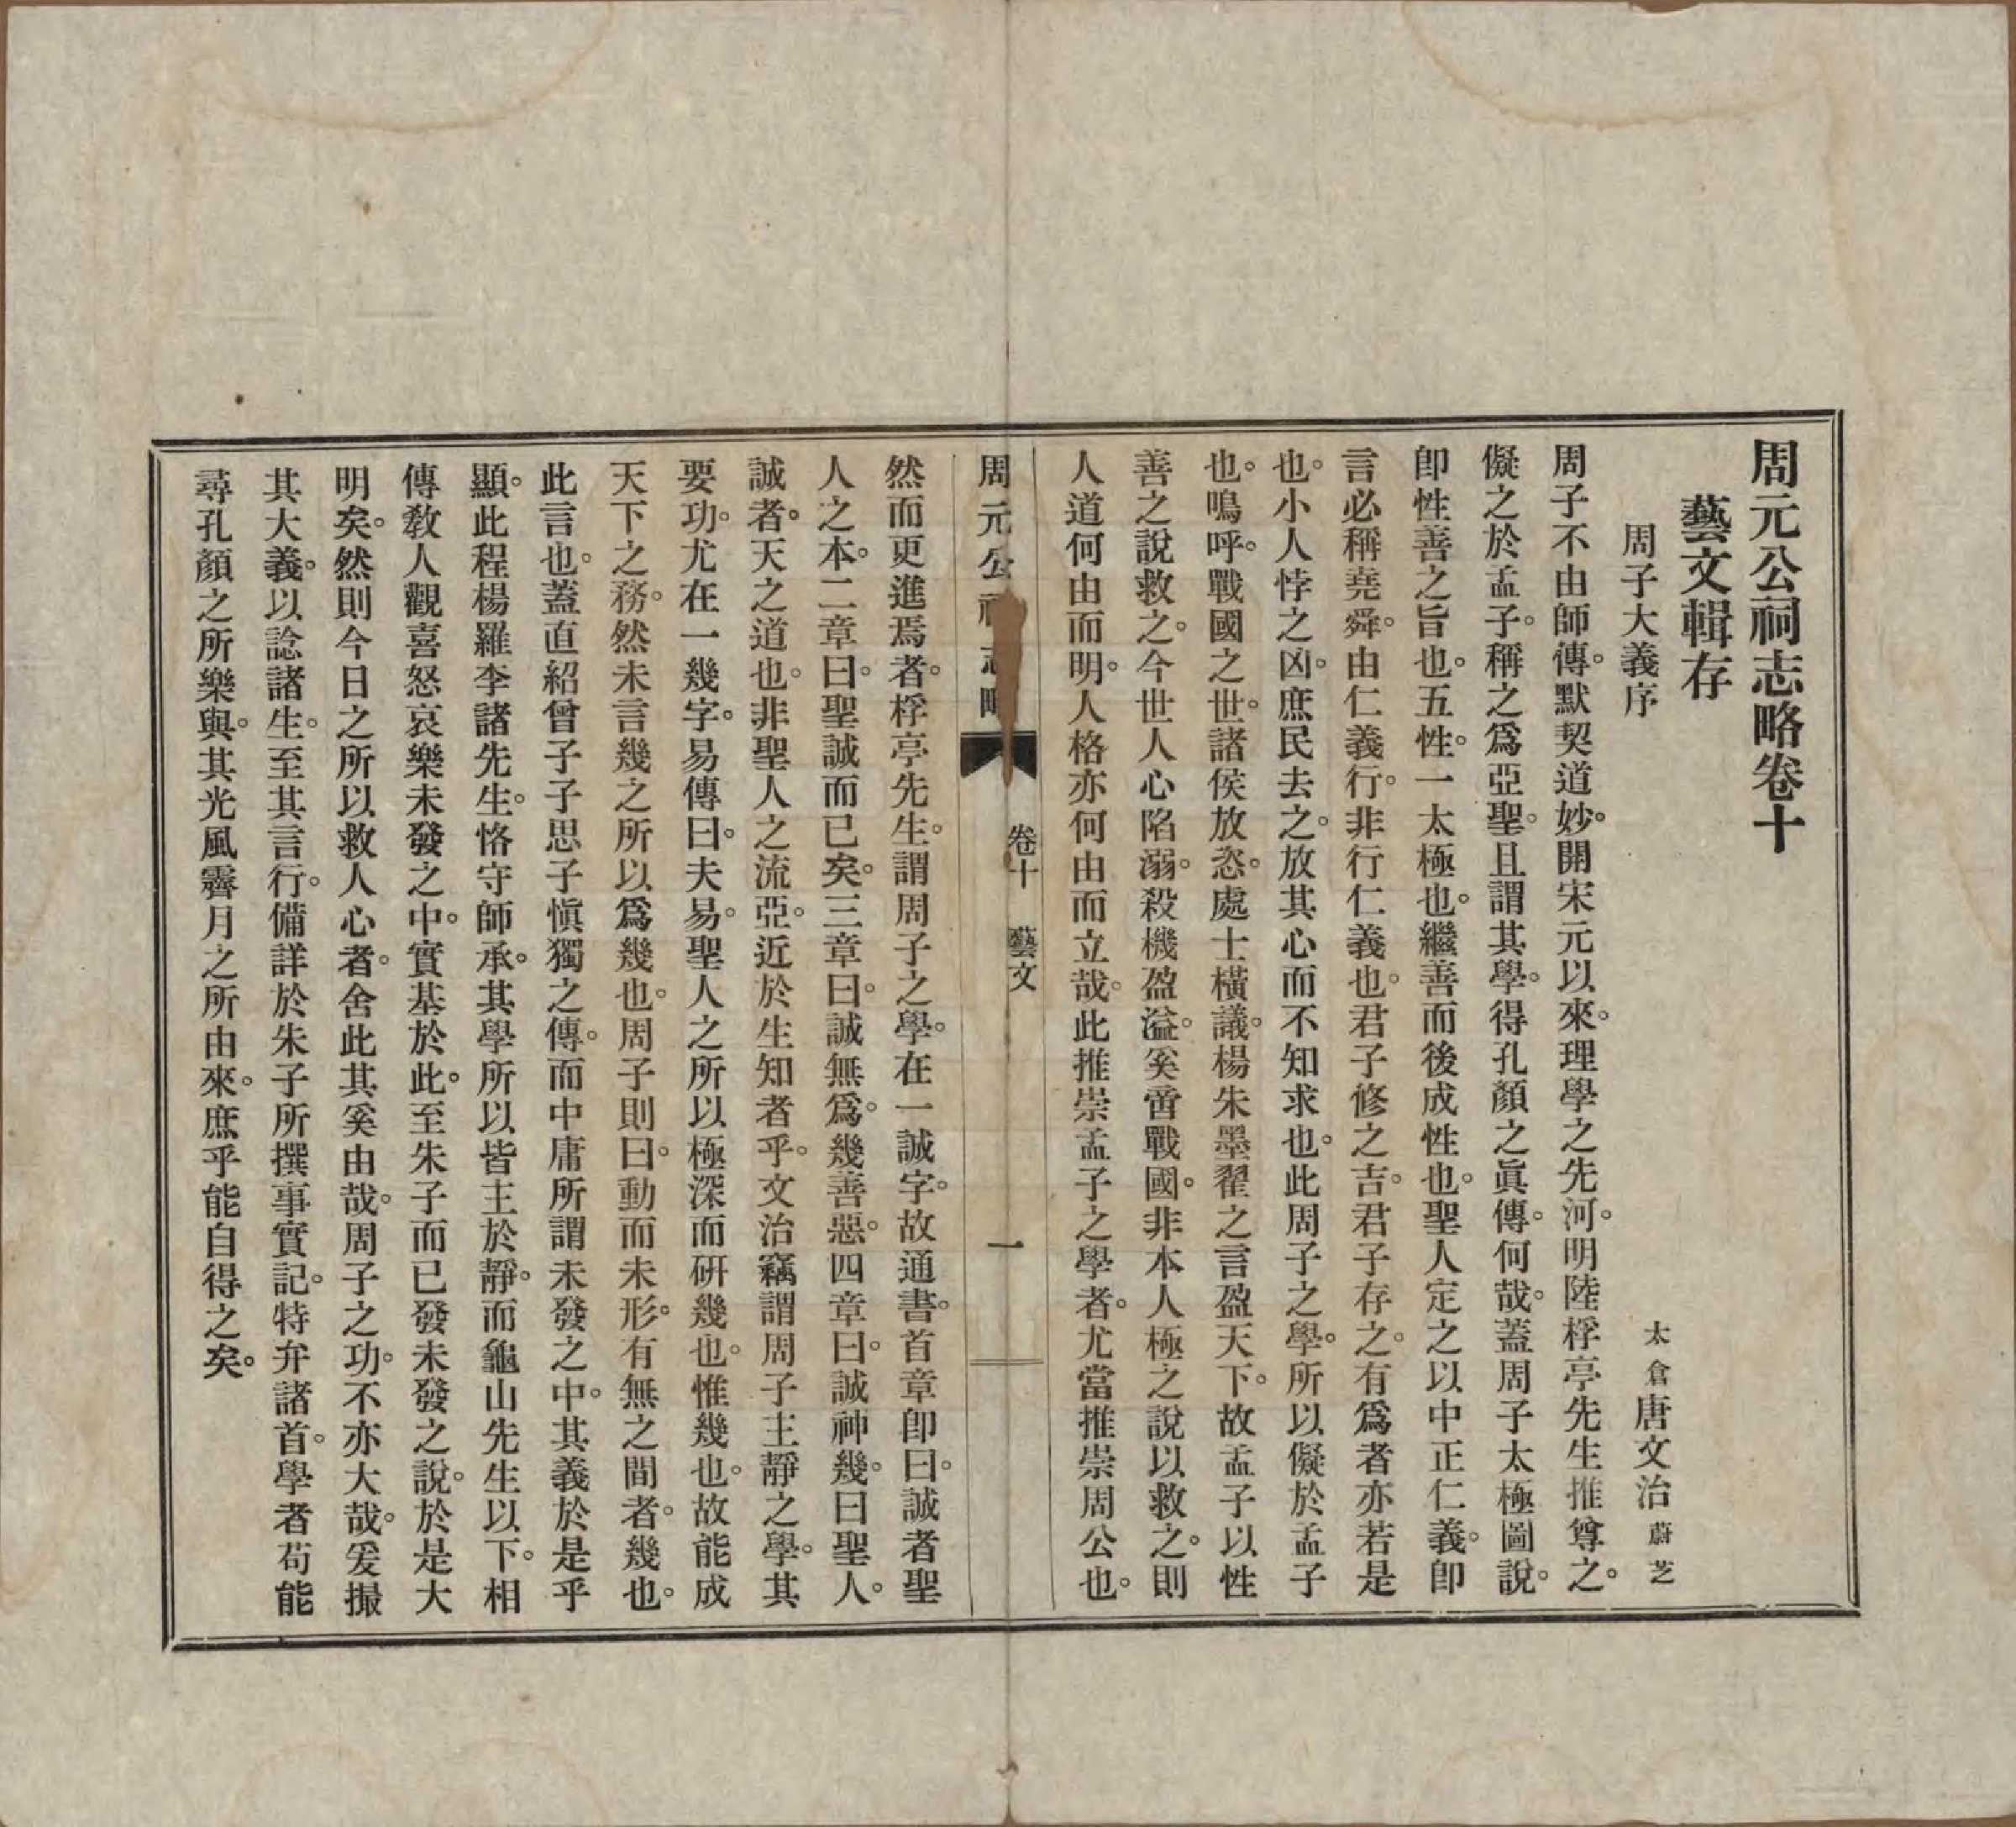 周元公祠志略卷十
藝文輯存
周子大義序
太倉唐文治蔚芝
周子不由師傳。默契道妙。開宋元以來。理學之先河。明陸桴亭先生推尊之。
儗之於孟子。稱之爲亞聖。且謂其學。得孔顏之眞傳。何哉。蓋周子太極圖說。
卽性善之旨也。五性。一太極也。繼善而後成性也。聖人定之以中正仁義。卽
言必稱堯舜。由仁義行。非行仁義也。君子修之吉。君子存之。有爲者亦若是
也。小人悖之凶。庶民去之。放其心而不知求也。此周子之學。所以儗於孟子
也。鳴呼。戰國之世。諸侯放恣。處士橫議。楊朱墨翟之言盈天下。故孟子以性
善之說救之。今世人心陷溺。殺機盈溢。奚啻戰國。非本人極之說以救之。則
人道何由而明。人格亦何由而立哉。此推崇孟子之學者。尤當推崇周公也。
周元公祠志略
卷十 藝文
一
然而更進焉者。桴亭先生。謂周子之學。在一誠字。故通書。首章卽曰。誠者聖
人之本。二章曰。聖誠而已矣。三章曰。誠無爲。幾善惡。四章曰。誠神幾。曰聖人。
誠者。天之道也。非聖人之流亞。近於生知者乎。文治竊謂周子主靜之學。其
要功。尤在一幾字。易傳曰。夫易。聖人之所以極深而研幾也。惟幾也。故能成
天下之務。然未言幾之所以爲幾也。周子則曰。動而未形。有無之間者。幾也。
此言也。蓋直紹曾子子思子愼獨之傳。而中庸所謂未發之中。其義於是乎
顯。此程楊羅李諸先生。恪守師承。其學所以皆主於靜。而龜山先生以下。相
傳敎人觀喜怒哀樂未發之中。實基於此。至朱子而已發未發之說。於是大
明矣。然則今日之所以救人心者。舍此其奚由哉。周子之功。不亦大哉。爰撮
其大義。以諗諸生。至其言行。備詳於朱子所撰事實記。特弁諸首。學者苟能
尋孔顏之所樂。與其光風霽月之所由來。庶乎能自得之矣。